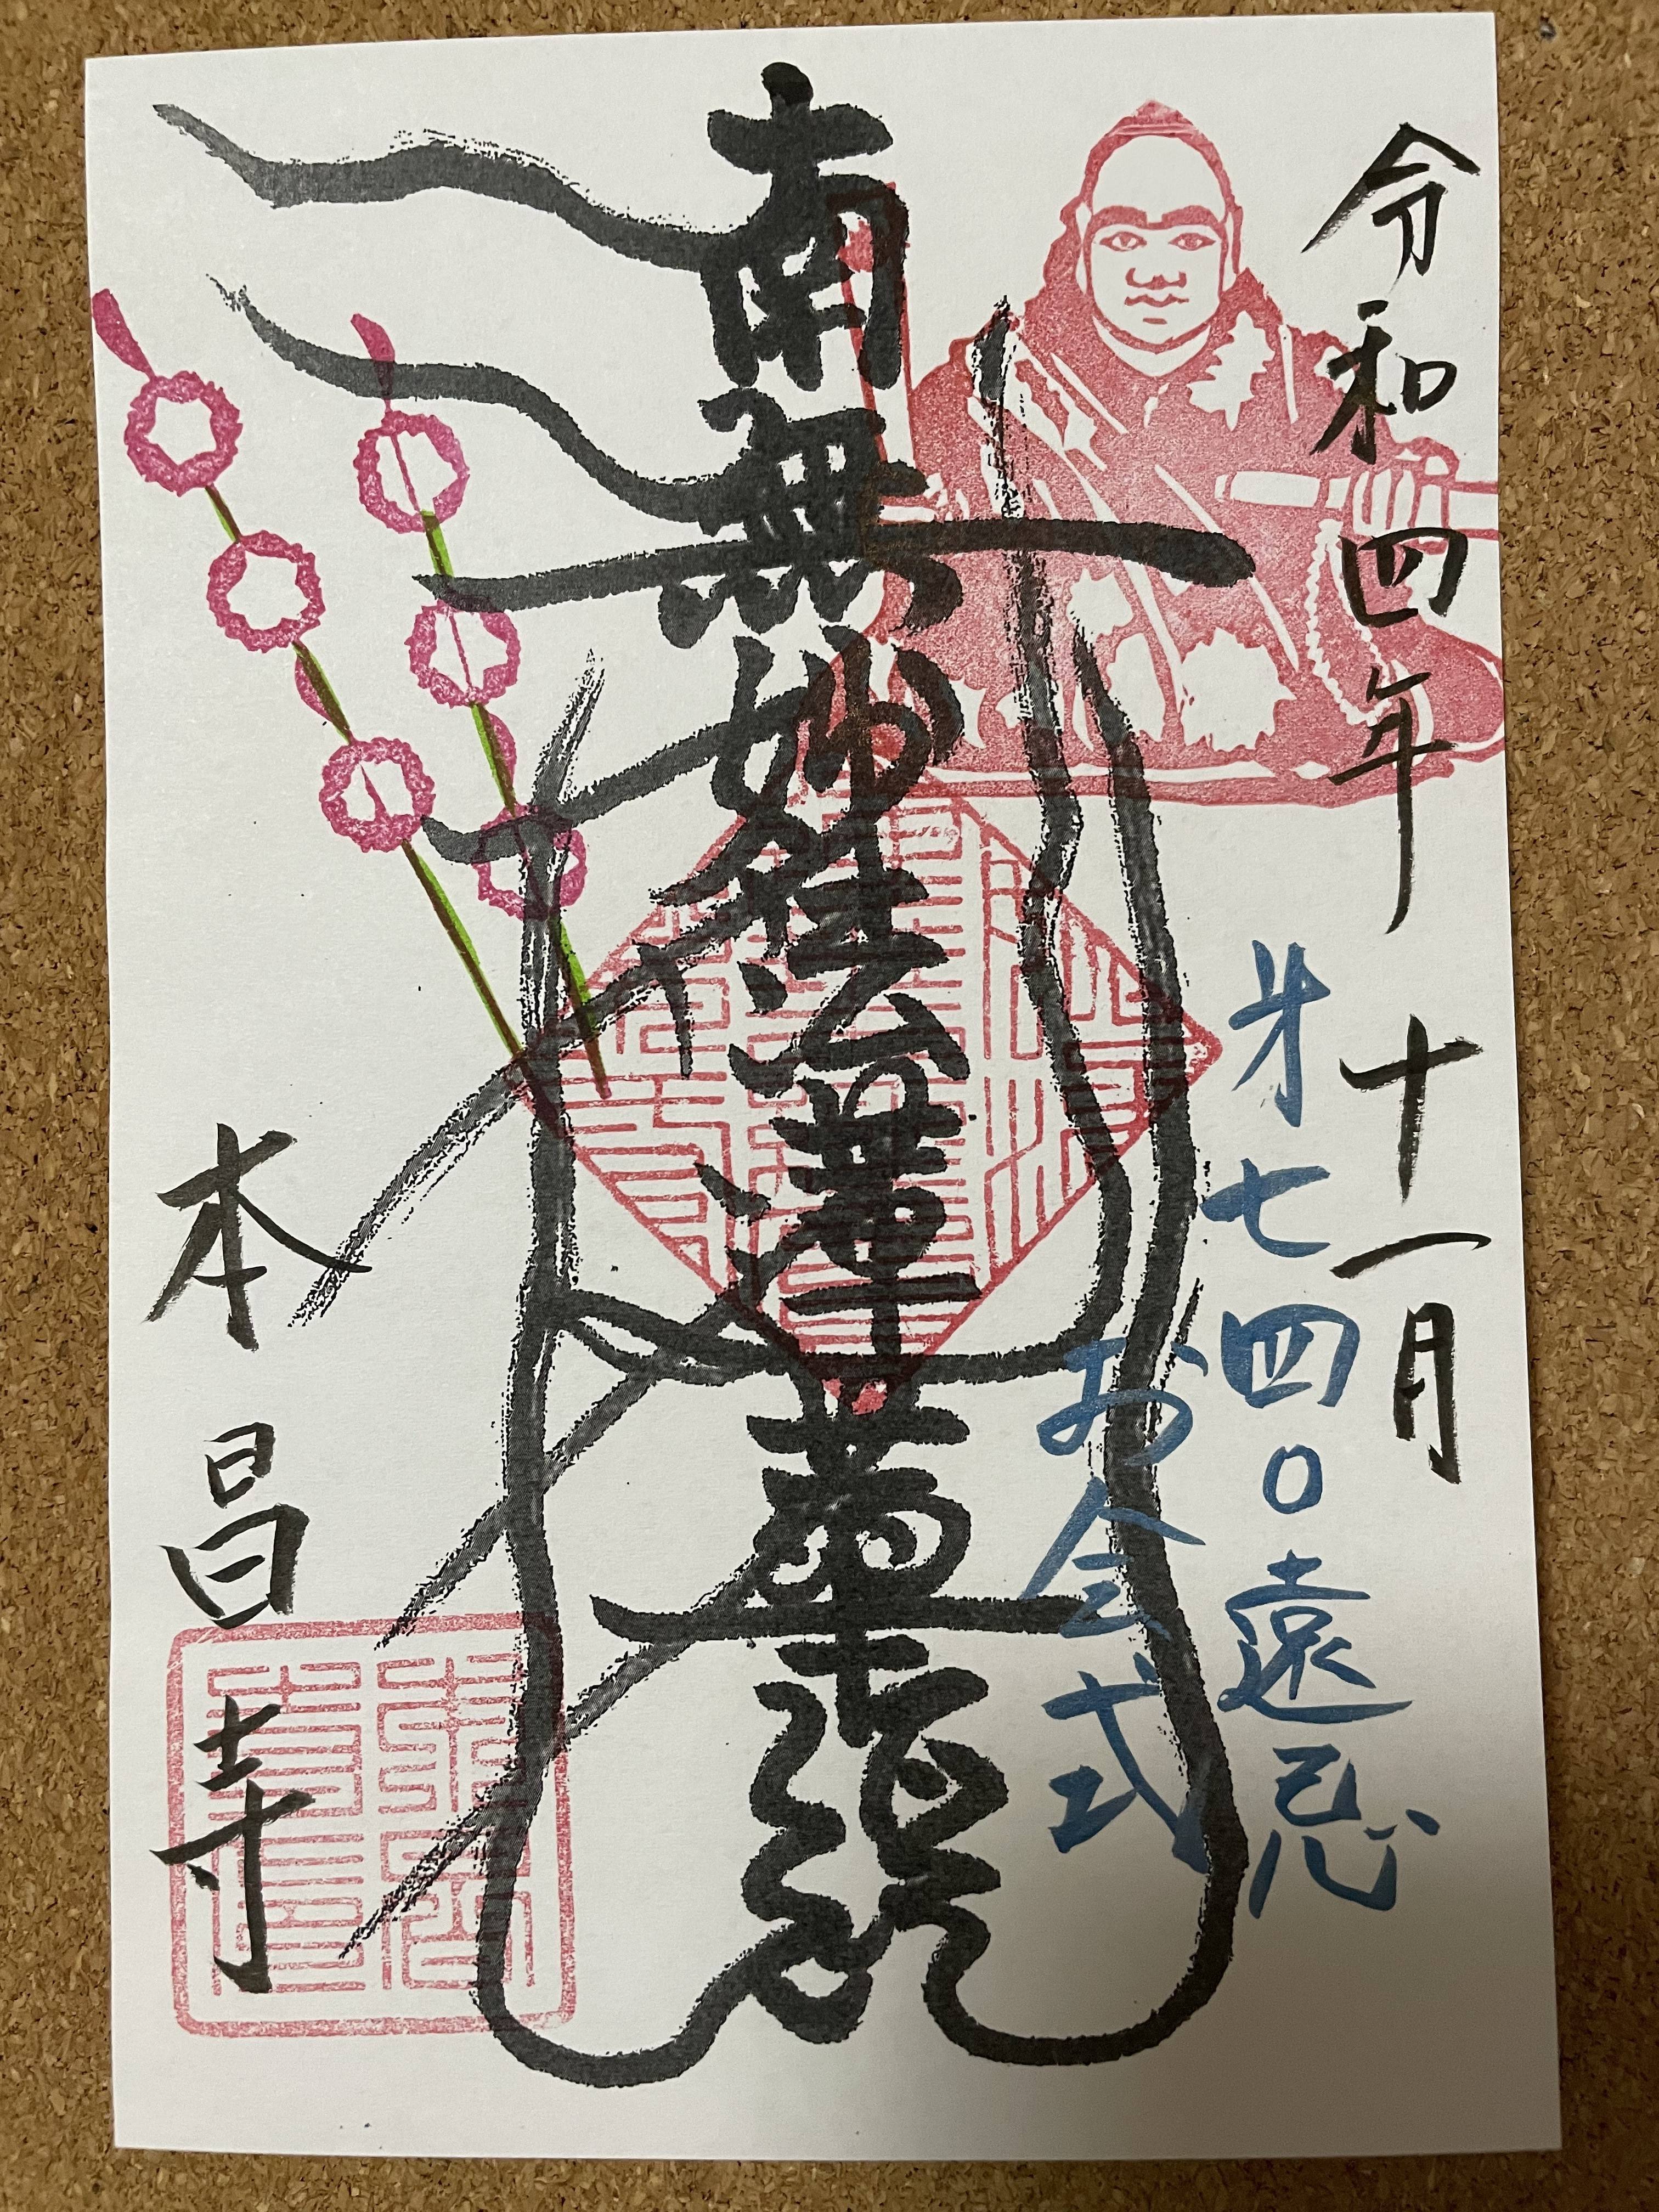 令和四年 十一月
第七四〇遠忌
お会式
南無妙法蓮華経
本昌寺